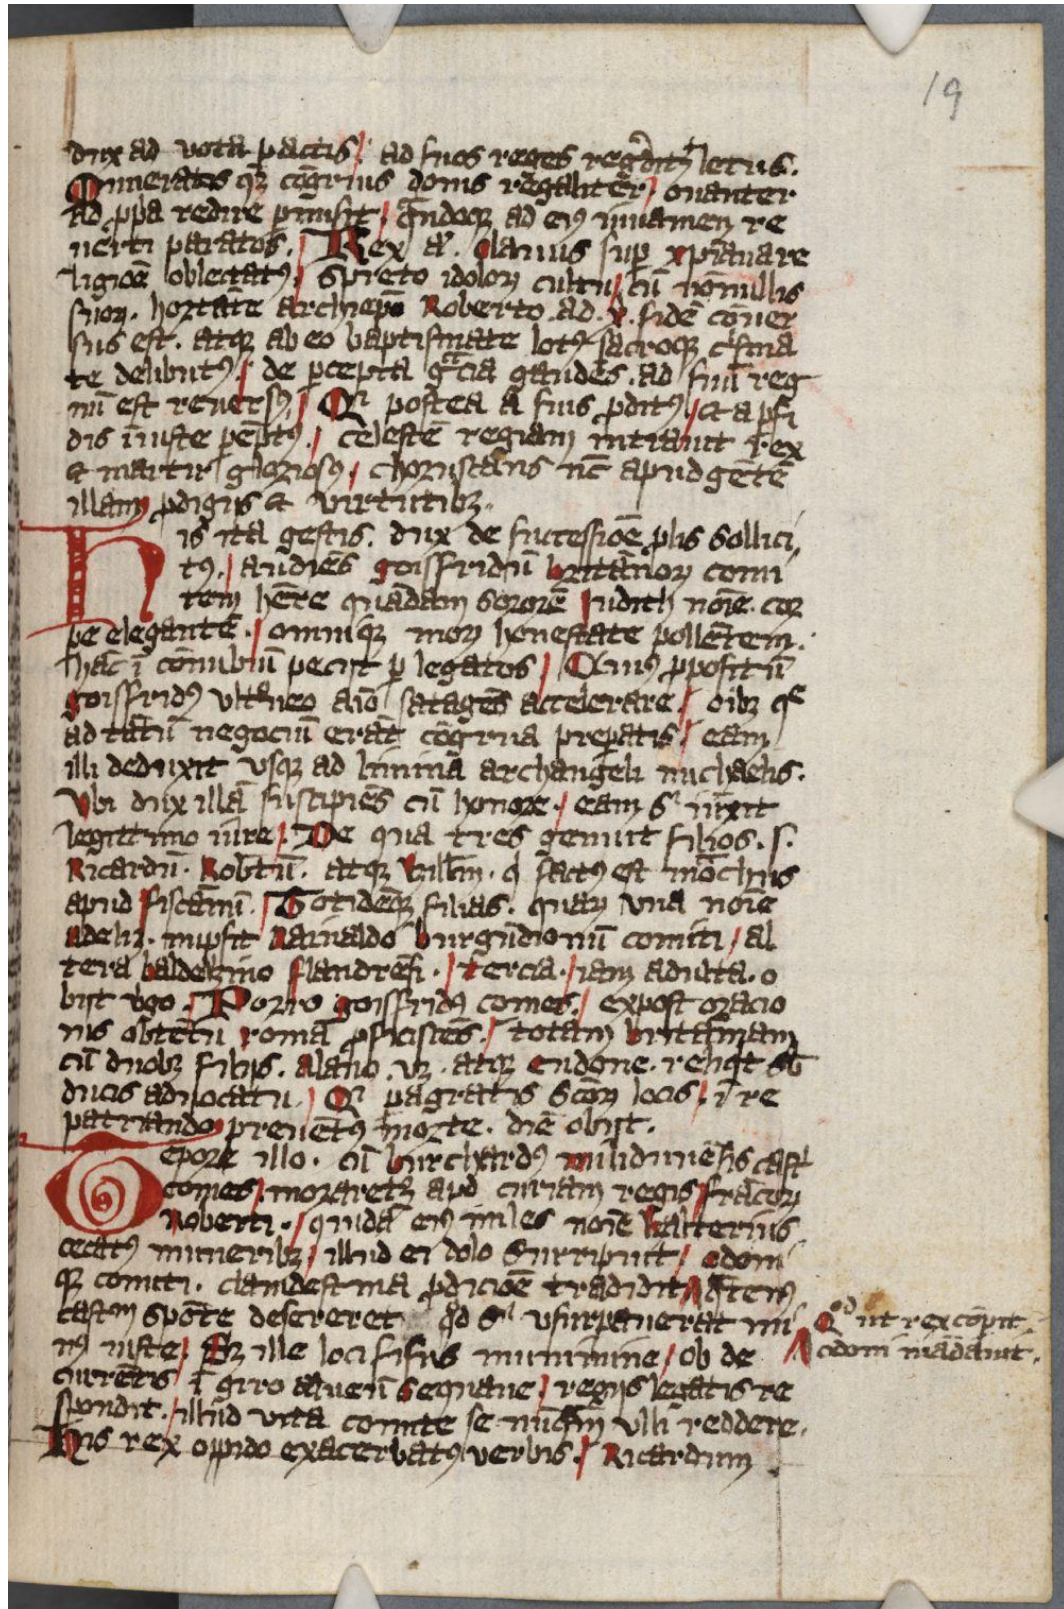 dux ad vota pactis / ad suos reges reg̾dit᷑ letus.
Muneratos q̄ꝫ cōgruis donis regalit̾ / ouanter
ad ꝓpa redire ꝑmisit / quādoqꝫ ad eiꝰ iuuamen re
uerti paratos / Rex aͭ. olauus sup xp̄iana re
ligiōe oblectatꝰ / spreto idoloꝝ cultu / cū nōnullis
suoꝝ. hortāte archiepō Roberto. ad. x. fidē cōuer
sus est. atqꝫ ab eo baptismate lotꝰ sacroqꝫ crͥsma
te delibutꝰ / de ꝑcepta gͣcia gaudēs. ad suū reg
nū est reuersꝰ / Qͥ postea a suis ꝓditꝰ / ⁊ a ꝑfi
dis iniuste pēptꝰ / celestē regiam intrauit rex
⁊ martir gloriosꝰ / choruscans nūc apud gētē
illam ꝓdigiis ⁊ virtutibꝫ.
His ita gestis. dux de successiōe ꝓlis sollici
tꝰ / audiēs goiffridū britānoꝝ comi
tem hēre quādam sororē Judith noīe. cor
pe elegantē / omniqꝫ moꝝ honestate pollētem.
hāc ī cōnubiū peciit ꝑ legatos / Cuiꝰ ꝓpositū
goiffridꝰ vltͣneo aīo satagēs accelerare / oībꝫ qͤ
ad tātū negociū erāt cōgrua prepatis / eam
illi deduxit vsqꝫ ad limina archangeli michaelis.
Vbi dux illā suscipiēs cū honore / eam sͥ iūxit
legittimo iure / De qua tres genuit filios. s.
Ricardū. Robtū. atqꝫ Willm̄. qͥ factꝰ est mōchus
apud fiscānū / Totidēqꝫ filias. quaꝝ vna noīe
adeliz. nupsit Rainaldo burgūdionū comiti / al
tera baldewino flandrēsi / tercia / iam adulta. o
biit vͥgo / Porro goiffridꝰ comes / expost oracio
nis obtētu romā ꝓficiscēs / totam britānniam
cū duobꝫ filiis. alano. vꝫ. atqꝫ eudone. reliqͥt sb̄
ducis aduocatu / Qͥ pagratis sctōꝝ locis / ī re
patriando preuētꝰ morte. diē obiit.
Tēpore illo. cū burchardꝰ milidunēsis castͥ
comes / moraretᷣ apud curiam regis frācoꝝ
Roberti / quidā eiꝰ miles noīe Walterius
cecatꝰ muneribꝫ / illud ei dolo surripuit / odoni
qꝫ comiti. clandestina ꝓdiciōe tradidit /\ Qͣtenꝰ
castrm̄ spōte desereret qd̄ sͥ vsurpauerat mi
nꝰ iuste / Sꝫ ille loci fisus munimine / ob de
currētis ī giro alueū sequane / regiis legatis re
spondit. illud vita comite se nūqͣm vlli reddere.
His rex oppido exacerbatꝰ verbis / Ricardum
Qd̄ ut rex cōperit.
/\ odoni mādauit.